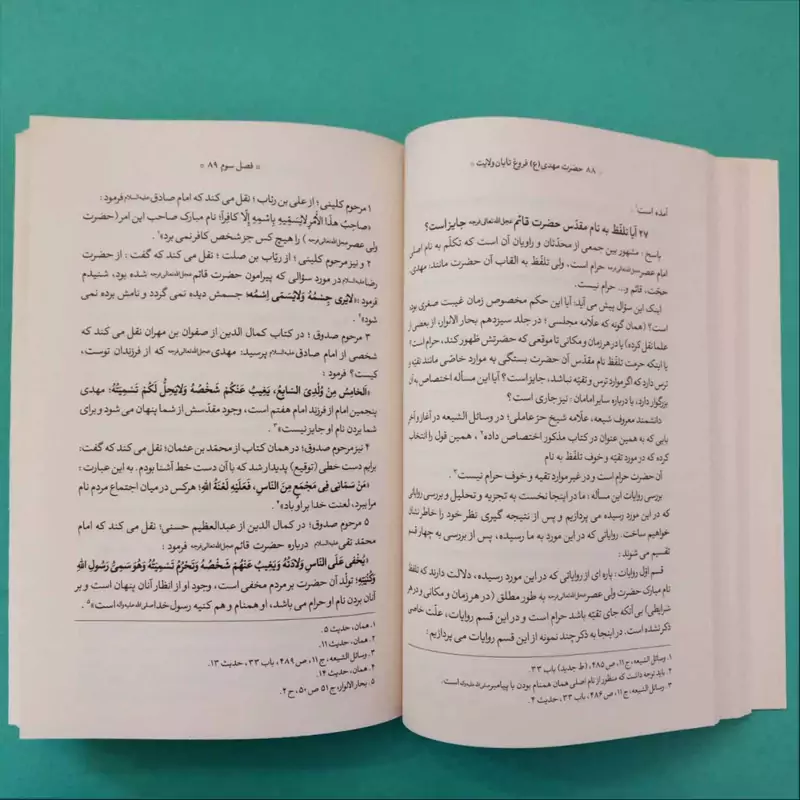 ۸۸ حضرت مهدی(ع) فروغ تابان ولایت
آمده است۱.
۲۷ آیا تلفّظ به نام مقدّس حضرت قائم عجل‌الله‌تعالی‌فرجه جایز است؟
پاسخ : مشهور بین جمعی از محدّثان و راویان آن است که تکلّم به نام اصلی
امام عصر عجل‌الله‌تعالی‌فرجه حرام است، ولی تلفّظ به القاب آن حضرت مانند: مهدی،
حجّت، قائم و... حرام نیست.
اینک این سؤال پیش می آید: آیا این حکم مخصوص زمان غیبت صغری بوده
است؟ (همان گونه که علّامه مجلسی ؛ در جلد سیزدهم بحار الانوار، از بعضی از
علما نقل کرده) یا در هر زمان و مکانی تا موقعی که حضرتش ظهور کند، حرام است؟
یا اینکه حرمت تلفّظ نام مقدّس آن حضرت بستگی به موارد خاصّی مانند تقیّه و
ترس دارد که اگر موارد ترس و تقیّه نباشد، جایز است؟ آیا این مسأله اختصاص به آن
بزرگوار دارد، یا درباره سایر امامان ؛ نیز جاری است؟
دانشمند معروف شیعه، علّامه شیخ حرّ عاملی؛ در وسائل الشیعه در آغاز و آخر
بابی که به همین عنوان در کتاب مذکور اختصاص داده۲، همین قول را انتخاب
کرده که در مورد تقیّه و خوف تلفّظ به نام
آن حضرت حرام است و در غیر موارد تقیه و خوف حرام نیست.۳
بررسی روایات این مسأله : ما در اینجا نخست به تجزیه و تحلیل و بررسی روایاتی
که در این مورد رسیده می پردازیم و پس از نتیجه گیری نظر خود را خاطر نشان
خواهیم ساخت. روایاتی که در این مورد به ما رسیده، پس از بررسی به چهار قسم
تقسیم می شوند :
قسم اوّل روایات : پاره ای از روایاتی که در این مورد رسیده، دلالت دارند که تلفّظ
نام مبارک حضرت ولی عصر عجل‌الله‌تعالی‌فرجه به طور مطلق (در هر زمان و مکانی و در هر
شرایطی) بی آنکه جای تقیّه باشد حرام است و در این قسم روایات، علّت خاصّی
ذکر نشده است. در اینجا به ذکر چند نمونه از این قسم روایات می پردازیم :
۱. وسائل الشیعه، ج ۱۱، ص ۴۸۵، (ط جدید) باب ۳۳.
۲. باید توجه داشت که منظور از نام اصلی همان همنام بودن با پیامبر صلی‌الله‌علیه‌وآله است.
۳. وسائل الشیعه، ج ۱۱، ص ۴۸۶، باب ۳۳، حدیث ۴.
فصل سوم ۸۹
۱ مرحوم کلینی؛ از علی بن رئاب ؛ نقل می کند که امام صادق علیه‌السلام فرمود :
«صاحِبُ هذَا الْأَمْرِ لایُسَمِّیهِ بِاسْمِهِ إِلّا کافِراً؛ نام مبارک صاحب این امر (حضرت
ولی عصر عجل‌الله‌تعالی‌فرجه ) را هیچ کس جز شخص کافر نمی برد».۱
۲ و نیز مرحوم کلینی ؛ از ریّاب بن صلت ؛ نقل می کند که گفت : از حضرت
رضا علیه‌السلام در مورد سؤالی که پیرامون حضرت قائم عجل‌الله‌تعالی‌فرجه شده بود، شنیدم
فرمود : «لایُری جِسْمُهُ وَلایُسَمّی اِسْمُهُ؛ جسمش دیده نمی گردد و نامش برده نمی
شود».۲
۳ مرحوم صدوق ؛ در کتاب کمال الدین از صفوان بن مهران نقل می کند که
شخصی از امام صادق علیه‌السلام پرسید: مهدی عجل‌الله‌تعالی‌فرجه که از فرزندان توست،
کیست؟ فرمود :
«اَلخامِسُ مِنْ وُلْدِی السّابِعُ، یَغیبُ عَنْکُمْ شَخْصُهُ وَلایَحِلُّ لَکُمْ تَسْمِیَتُهُ؛ مهدی
پنجمین امام از فرزند امام هفتم است، وجود مقدّسش از شما پنهان می شود و برای
شما بردن نام او جایز نیست».۳
۴ نیز مرحوم صدوق؛ در همان کتاب از محمّد بن عثمان؛ نقل می کند که گفت:
برایم دست خطی (توقیع) پدیدار شد که با آن دست خط آشنا بودم. به این عبارت :
«مَنْ سَمّانی فی مَجْمَعٍ مِنَ النّاسِ، فَعَلَیْهِ لَعْنَةُ اللهِ؛ هرکس در میان اجتماع مردم نام
مرا ببرد، لعنت خدا بر او باد».۴
۵ مرحوم صدوق؛ در کمال الدین از عبدالعظیم حسنی؛ نقل می کند که امام
محمّد تقی علیه‌السلام درباره حضرت قائم عجل‌الله‌تعالی‌فرجه فرمود :
«یَخْفی عَلَی النّاسِ وِلادَتُهُ وَیَغیبُ عَنْهُمْ شَخْصُهُ وَتَحْرُمُ تَسْمِیَتُهُ وَهُوَ سَمِیُّ رَسُولِ اللهِ
وَکُنْیَتُهُ؛ تولّد آن حضرت بر مردم مخفی است، وجود او از انظار آنان پنهان است و بر
آنان بردن نام او حرام می باشد، او همنام و هم کنیه رسول خدا صلی‌الله‌علیه‌وآله است».۵
۱. همان، حدیث ۵.
۲. همان، حدیث ۱۱.
۳. وسائل الشیعه، ج ۱۱، ص ۴۸۹، باب ۳۳، حدیث ۱۳.
۴. همان، حدیث ۱۴.
۵. بحار الانوار، ج ۵۱ ص ۵۰، ح ۲.